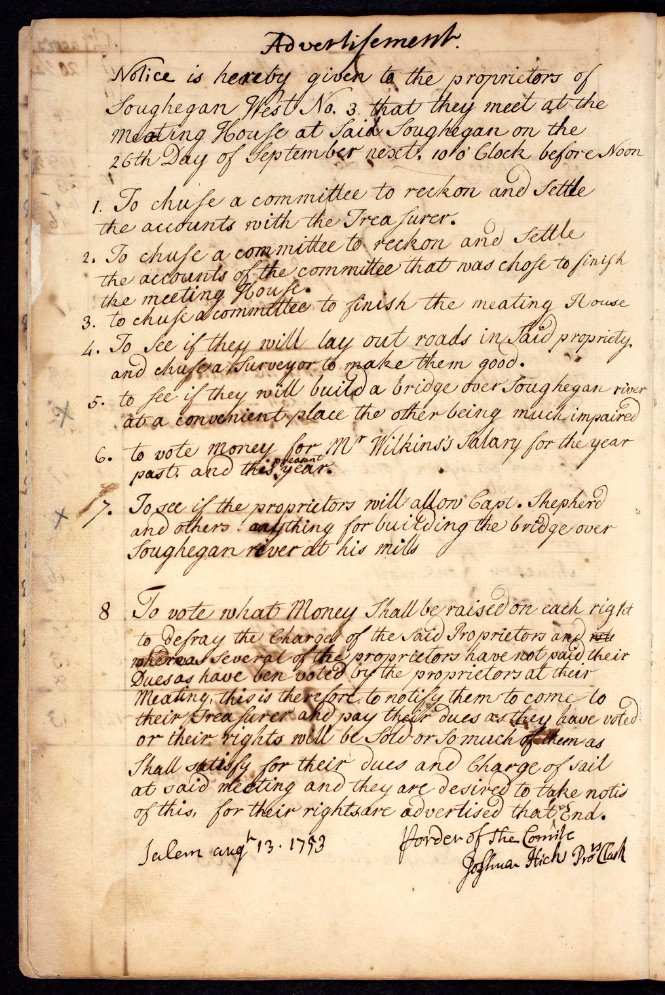 Advertisement.
Notice is hereby given to the proprietors of
Soughegan West No. 3 that they meet at the
meating House at Said Soughegan on the
26th Day of September next. 10 o' Clock before Noon
1. To chuse a committee to reckon and Settle
the accounts with the Treasurer.
2. To chuse a committee to reckon and settle
the accounts of the committee that was chose to finish
the meeting House.
3. to chuse a committee to finish the meating House
4. To see if they will lay out roads in Said propriety
and chuse a Surveyor to make them good.
5. to see if they will build a bridge over Soughegan river
at a convenient place the other being much impaired
6. to vote money for Mr Wilkins's Salary for the year
past, and this presant year.
7. To see if the proprietors will allow Capt. Shepherd
and others anything for building the bridge over
Soughegan river at his mills
8 To vote what Money Shall be raised on each right
to defray the Charges of the Said Proprietors and
whereas Several of the proprietors have not paid their
Dues as have ben voted by the proprietors at their
Meating, this is therefore to notify them to come to
their Treasurer and pay their dues as they have voted
or their rights will be Sold or So much of them as
Shall satesfy for their dues and Charge of sail
at said meeting and they are desired to take notis
of this, for their rights are advertised that End.
Salem augt 13. 1753 Porder of the Comite
Joshua Hick Prors Clark